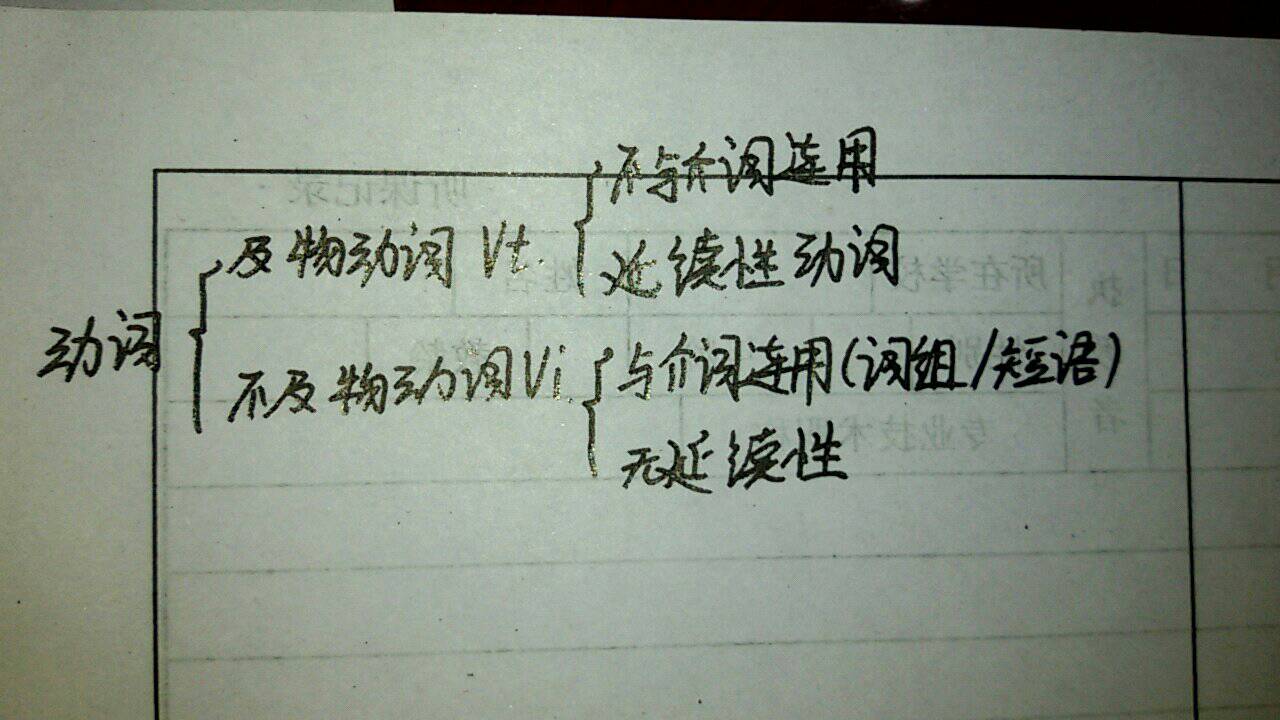 不与介词连用
及物动词 Vt.
延续性动词
动词
不及物动词Vi.
与介词连用(词组/短语)
无延续性
听课记录
所在学校
姓名
执
者
专业技术